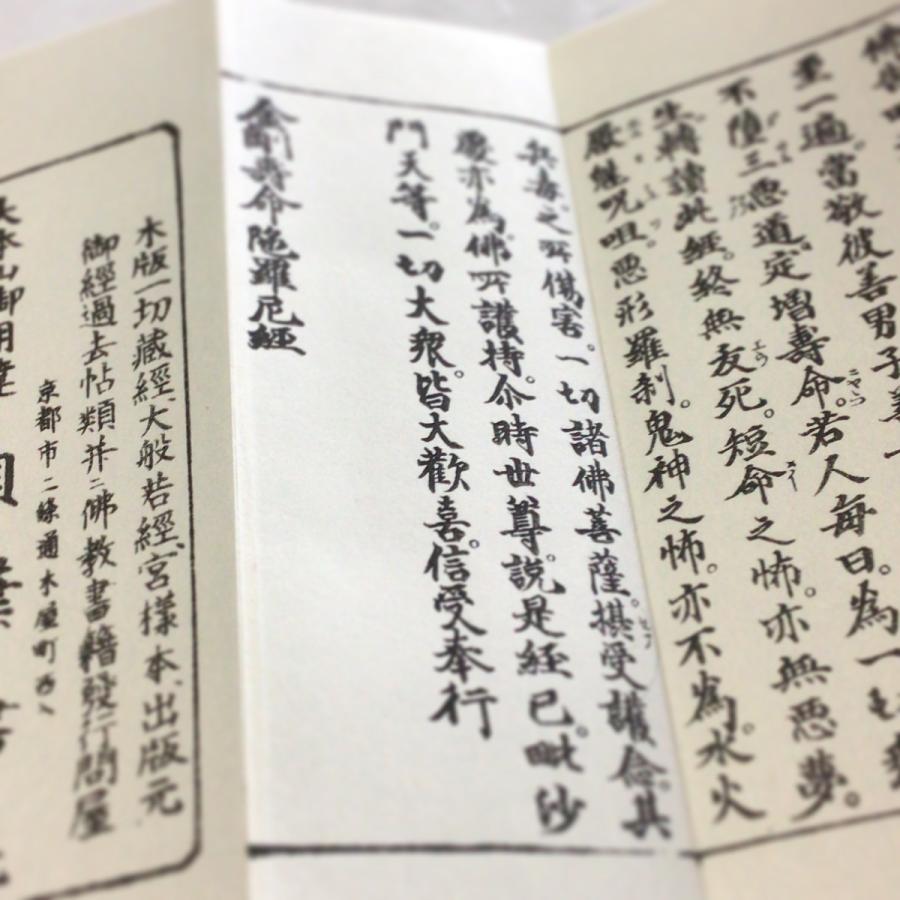 至一遍當敬彼善男子善
不墮三惡道。定增壽命。若人每日。為一切
生轉讀此經。終無夭死。短命之怖。亦無惡夢。
厭魅呪咀。惡形羅刹。鬼神之怖。亦不為。水火
兵毒。之所傷害。一切諸佛菩薩。攝受護念。其
處亦為佛。所護持。尒時世尊。說是經已。毗沙
門天等。一切大衆。皆大歡喜。信受奉行
金剛壽命陀羅尼經
木版一切藏經、大般若經、宮樣本、出版元
御經過去帖類并ニ佛教書籍發行問屋
京都市二條通木屋町
本山御用達